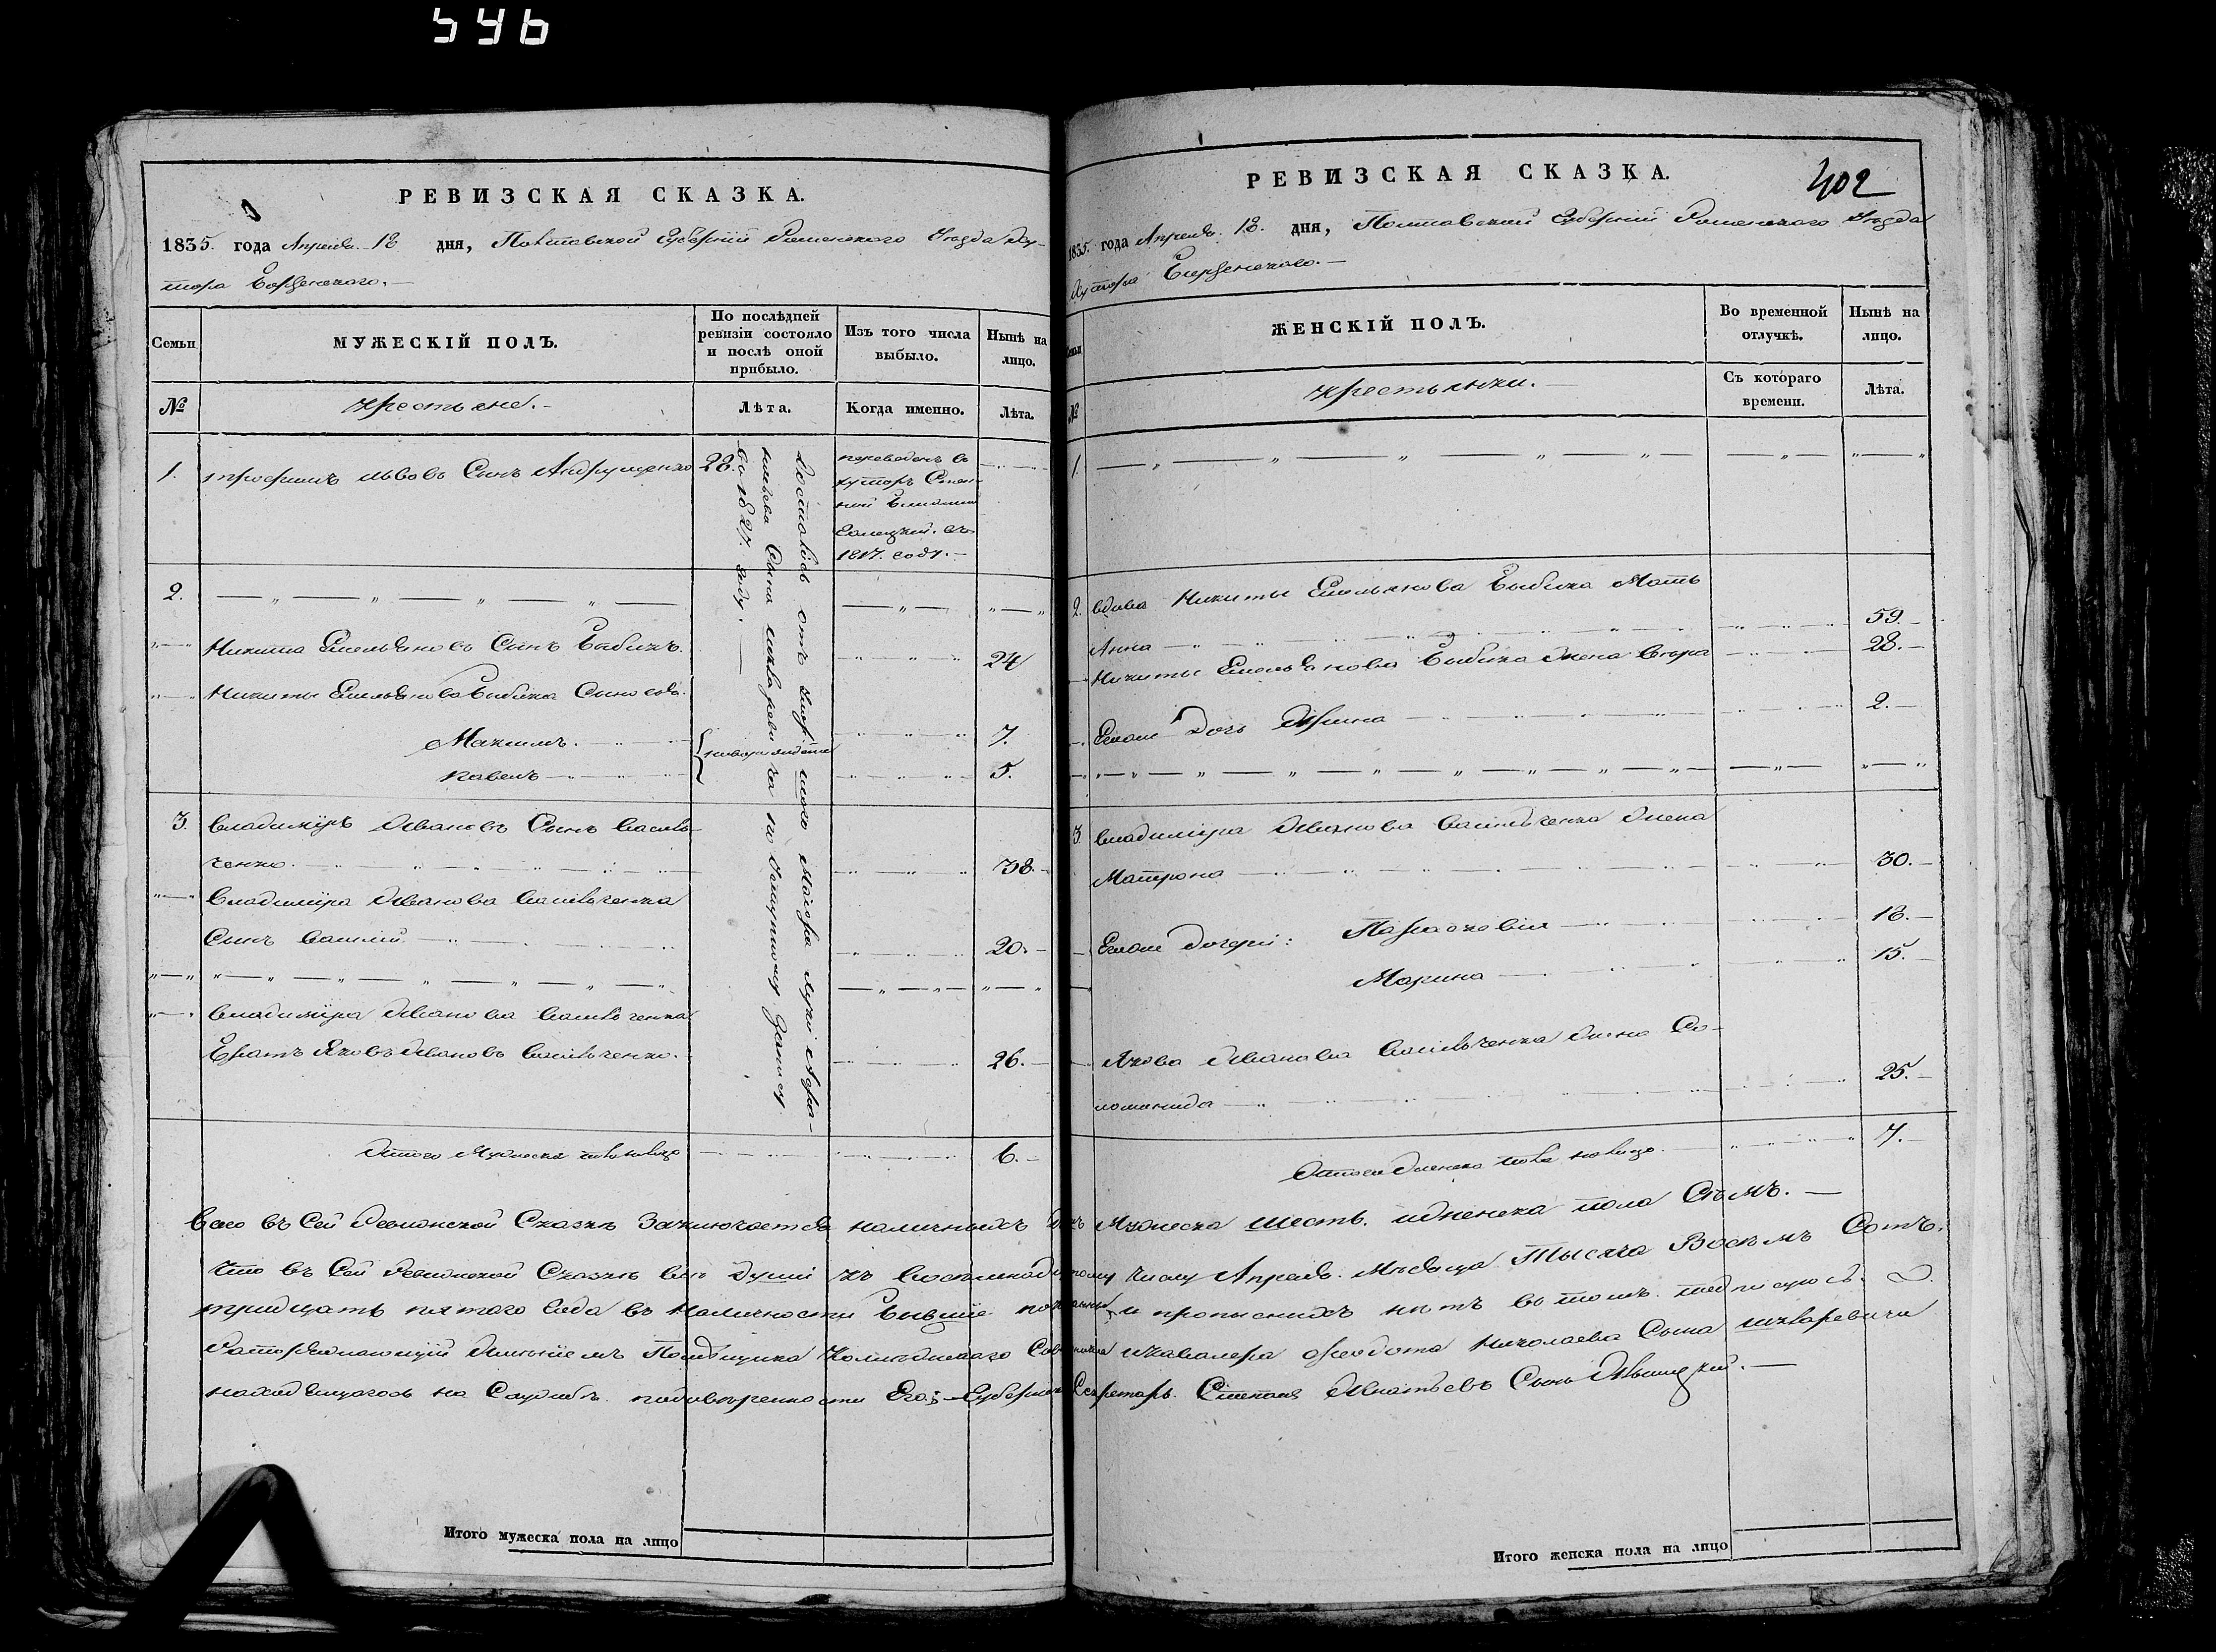 546
РЕВИЗСКАЯ СКАЗКА.
1835. года Апреля 18 дня, Полтавской Губерніи Роменского Уезда Ху-
тора
Семьи
МУЖЕСКІЙ ПОЛЪ.
По послѣдней ревизіи состояло и послѣ оной прибыло.
Изъ того числа выбыло.
Нынѣ на лицо.
№
крестьяне.
Лѣта.
Когда именно.
Лѣта.
1. Трофимъ Львовъ Сынъ Андрущенко 28.
переведенъ в
хуторъ
1817. году.
Достались отъ маіора
Сына
во 1827. году.
2.
Никита Емельяновъ Сынъ Бибикъ. 24
Никиты Емельянова Бибика Сыновья.
Максимъ. 7.
новорожденные
Павелъ 5.
3. Владиміръ Ивановъ Сынъ Василь-
ченко. 38.
Владиміра Иванова Васильченка
Сынъ Василій 20.
Владиміра Иванова Васильченка
Братъ Яковъ Ивановъ Васильченко. 26.
Итого Мужеска 6.
Итого мужеска пола на лицо
РЕВИЗСКАЯ СКАЗКА.
402
1835. года Апреля. 18. дня, Полтавской Губерніи Роменского Уезда
Хутора
Семьи
ЖЕНСКІЙ ПОЛЪ.
Во временной отлучкѣ.
Нынѣ на лицо.
№
крестьянки.
Съ котораго времени.
Лѣта.
1.
2. вдова Никиты Емельянова Бибика Мать
Анна 59.
Никиты Емельянова Бибика жена 28.
Ево дочь Ирина 2.
3. Владиміра Иванова Васильченка жена
Матрона 30.
Ево дочери: Парасковія 18.
Марина 15.
Якова Иванова Васильченка жена Со-
ломонида 25.
Итого женска пола налицо 7.
Всего въ Сей Ревизской Сказкѣ Заключается наличныхъ душъ Мужеска шесть. и женска пола Семъ.
Что въ Сей Ревизской Сказкѣ все души къ числу Апреля. Месяца Тысяча Восемъ Сотъ.
тридцать пятого Года в наличности бывшие показаны и прописныхъ нѣтъ в томъ. подписуюсь.
имѣніемъ Помѣщика и кавалера Федота Николаева Сына Шкляревича
находящагось на Службѣ. по довѣренности Его; Губернскій Секретарь. Степанъ Игнатьевъ Сынъ
Итого женска пола на лицо